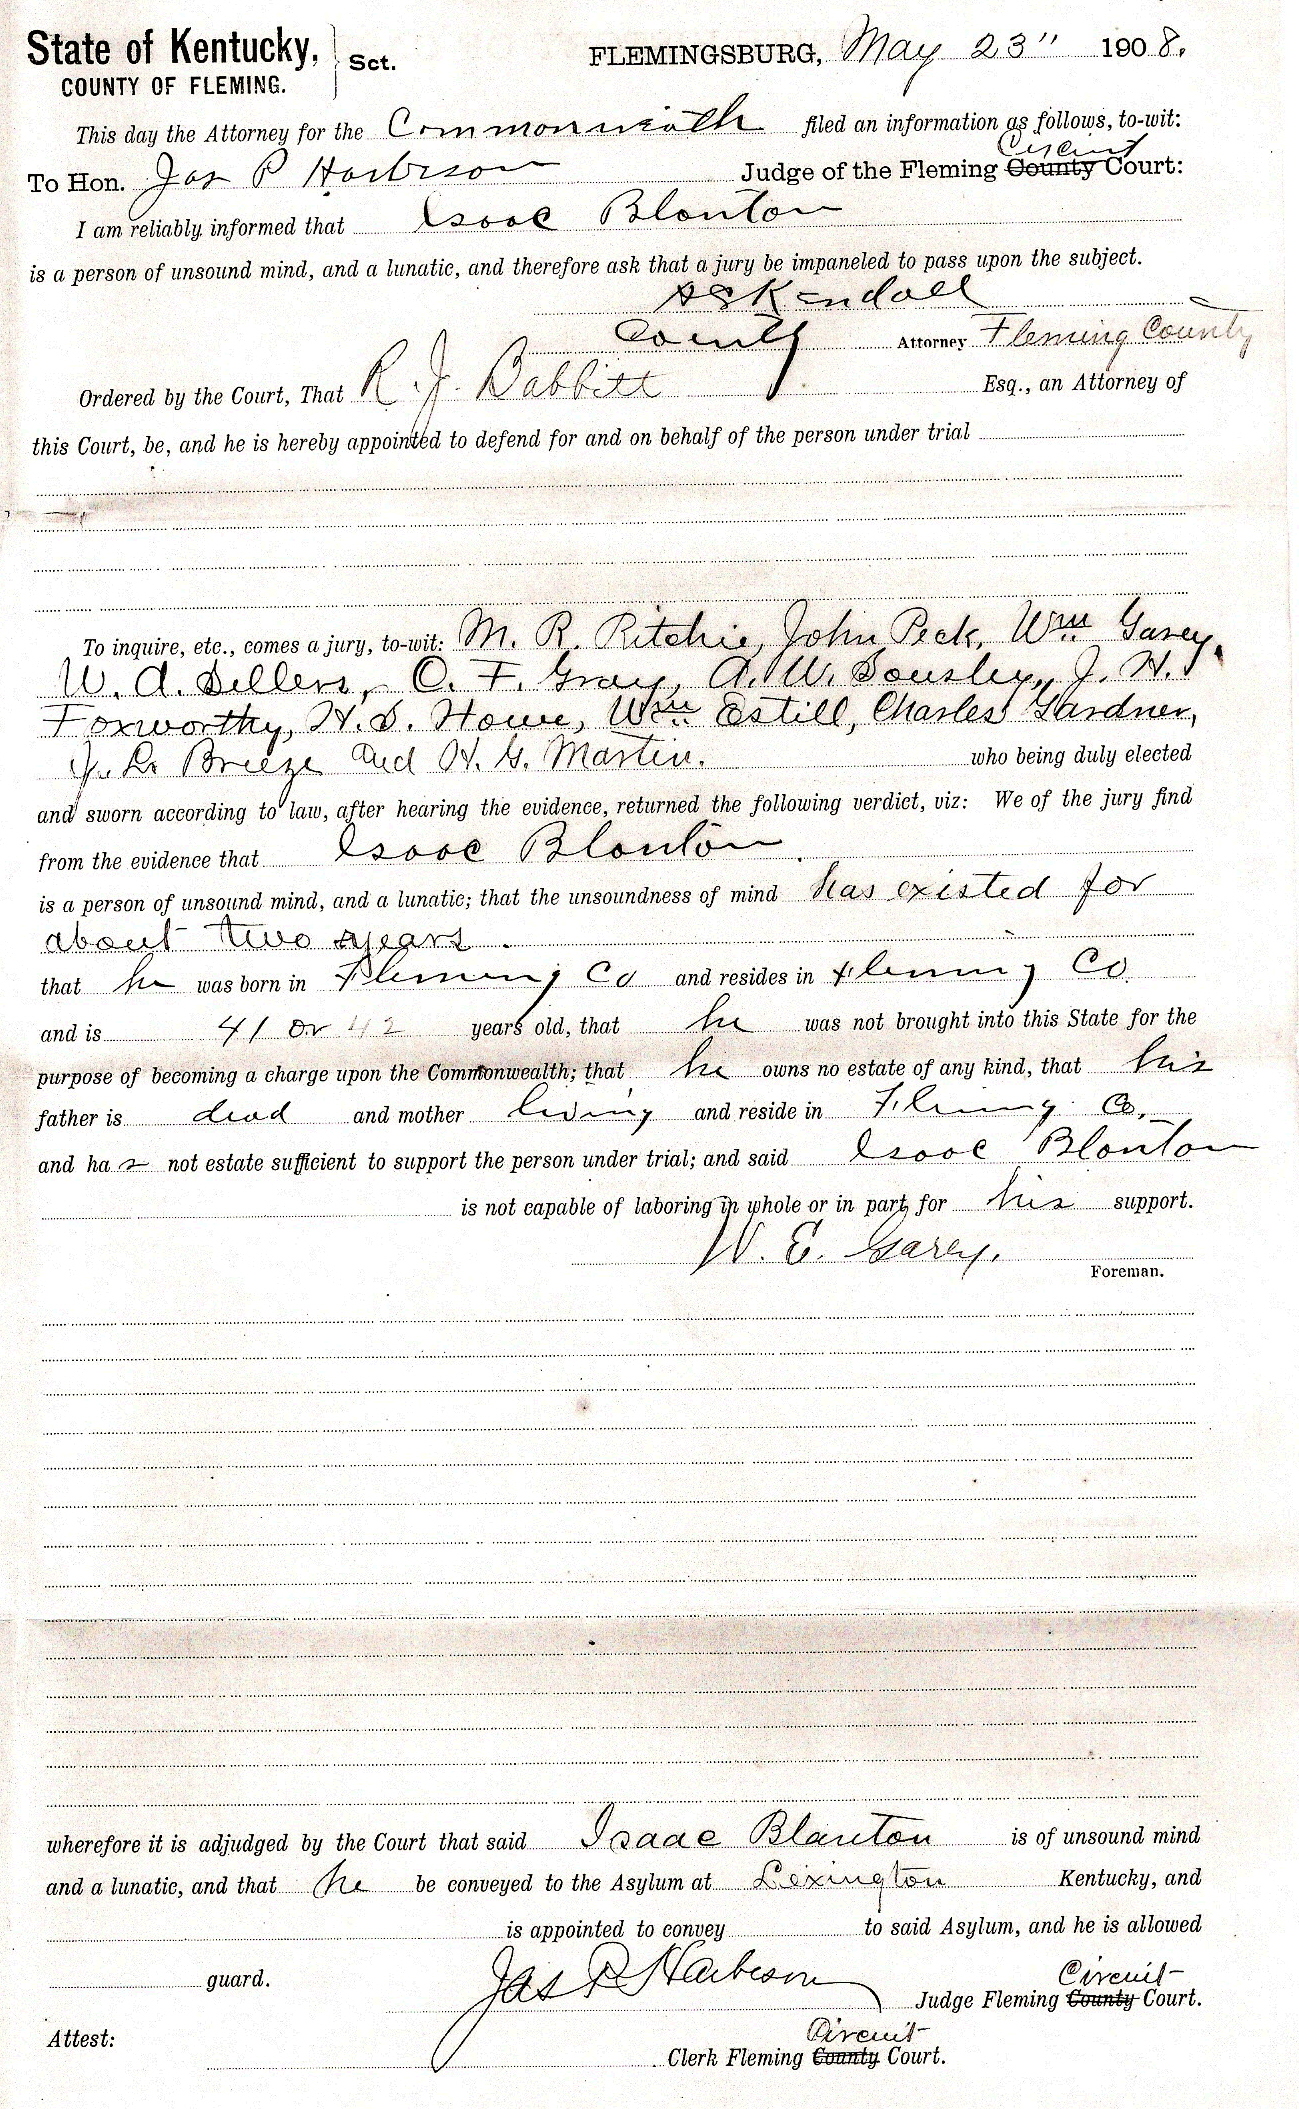 State of Kentucky, Sct. FLEMINGSBURG, May 23" 1908.
COUNTY OF FLEMING.
This day the Attorney for the Commonwealth filed an information as follows, to-wit:
Circuit
To Hon. Jas P Harbeson Judge of the Fleming County Court:
I am reliably informed that Isaac Blanton
is a person of unsound mind, and a lunatic, and therefore ask that a jury be impaneled to pass upon the subject.
Kendall
County Attorney Fleming County
Ordered by the Court, That R. J. Babbitt Esq., an Attorney of
this Court, be, and he is hereby appointed to defend for and on behalf of the person under trial
To inquire, etc., comes a jury, to-wit: M. R. Ritchie, John Peck, Wm Garey,
W. A. Sellers, O. F. Gray, A. W. Sousley, J. H.
Foxworthy, H. S. Howe, Wm Estill, Charles Gardner,
J. L. Breeze and H. G. Martin. who being duly elected
and sworn according to law, after hearing the evidence, returned the following verdict, viz: We of the jury find
from the evidence that Isaac Blanton.
is a person of unsound mind, and a lunatic; that the unsoundness of mind has existed for
about two years.
that he was born in Fleming Co and resides in Fleming Co
and is 41 or 42 years old, that he was not brought into this State for the
purpose of becoming a charge upon the Commonwealth; that he owns no estate of any kind, that his
father is dead and mother living and reside in Fleming Co,
and has not estate sufficient to support the person under trial; and said Isaac Blanton
is not capable of laboring in whole or in part for his support.
W. E. Garey.
Foreman.
wherefore it is adjudged by the Court that said Isaac Blanton is of unsound mind
and a lunatic, and that he be conveyed to the Asylum at Lexington Kentucky, and
is appointed to convey to said Asylum, and he is allowed
guard. Jas P Harbeson Circuit
Judge Fleming County Court.
Attest: Circuit
Clerk Fleming County Court.